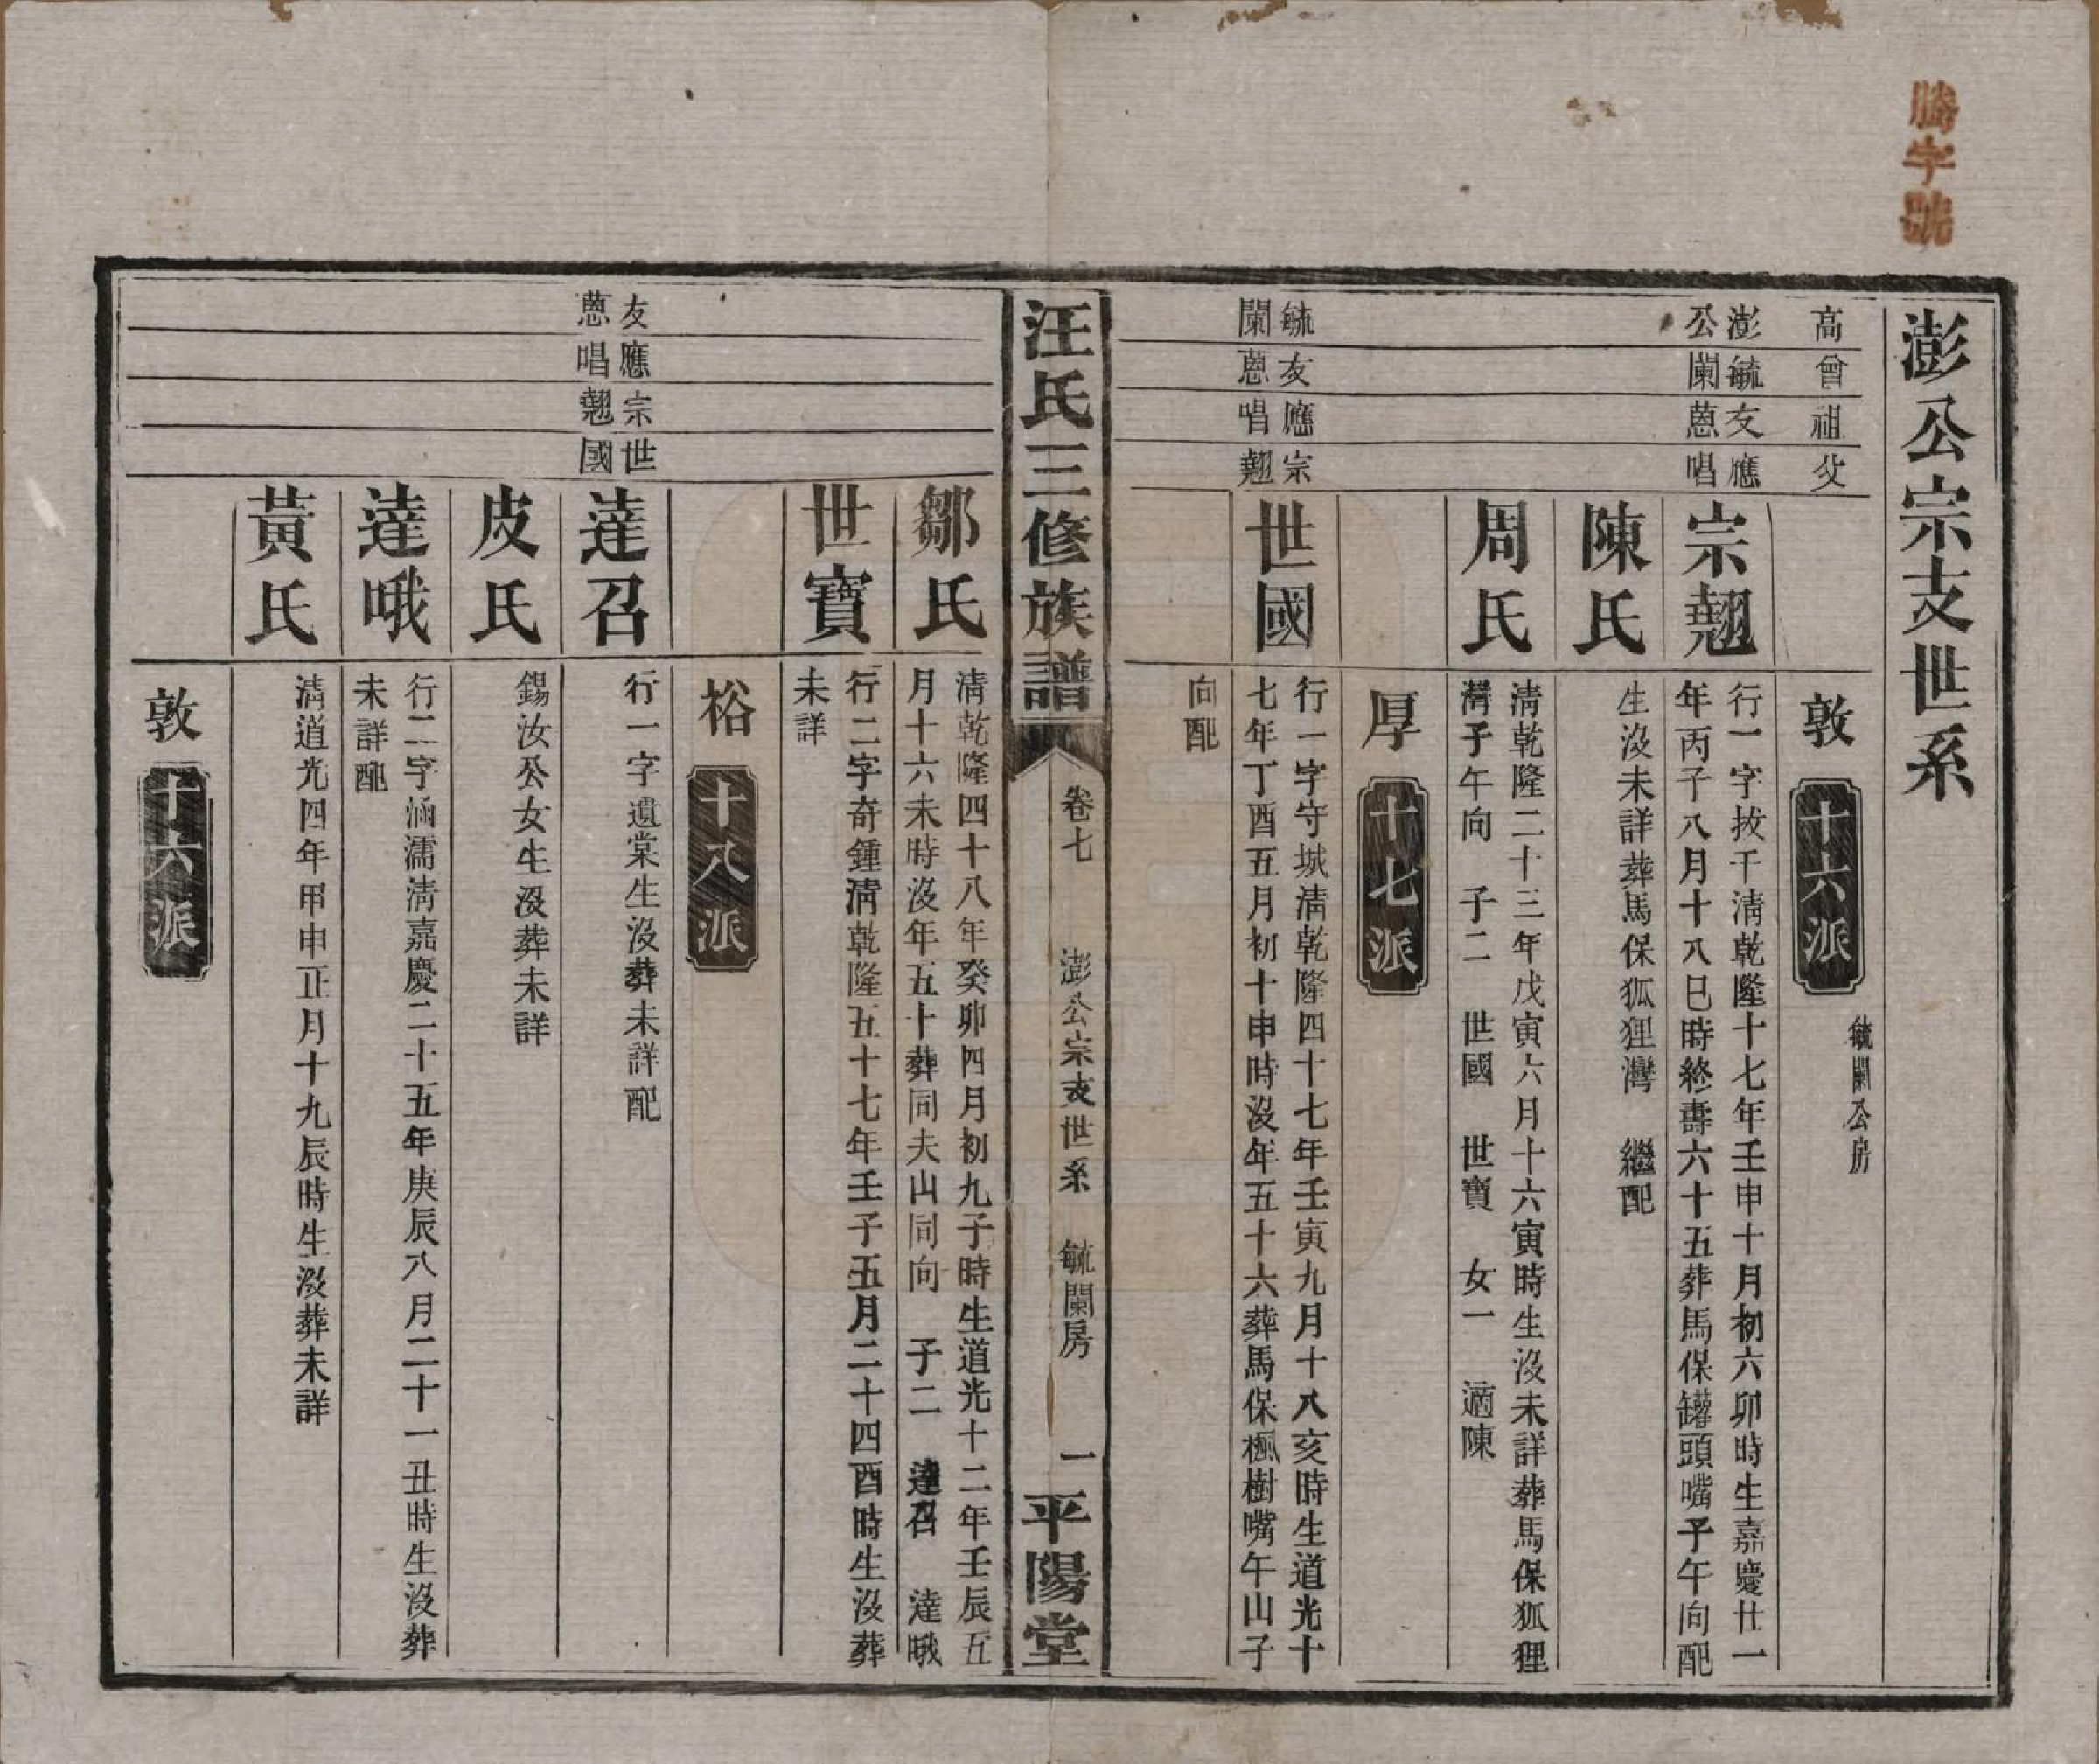 騰字號
澎公宗支世系
高
曾
祖
父
敦
十六派
毓闌公房
澎公
毓闌
友蒽
應唱
宗翹
行一字拔千清乾隆十七年壬申十月初六卯時生嘉慶廿一
年丙子八月十八巳時終壽六十五葬馬保罐頭嘴子午向配
陳氏
生沒未詳葬馬保狐狸灣 繼配
周氏
清乾隆二十三年戊寅六月十六寅時生沒未詳葬馬保狐狸
灣子午向 子二 世國 世寶 女一 適陳
厚
十七派
毓闌
友蒽
應唱
宗翹
世國
行一字守城清乾隆四十七年壬寅九月十八亥時生道光十
七年丁酉五月初十申時沒年五十六葬馬保楓樹嘴午山子
向配
汪氏三修族譜
卷七
澎公宗支世系 毓闌房
一
平陽堂
鄒氏
清乾隆四十八年癸卯四月初九子時生道光十二年壬辰五
月十六未時沒年五十葬同夫山同向 子二 達召 達哦
世寶
行二字奇鍾清乾隆五十七年壬子五月二十四酉時生沒葬
未詳
裕
十八派
友蒽
應唱
宗翹
世國
達召
行一字遺棠生沒葬未詳配
皮氏
錫汝公女生沒葬未詳
達哦
行二字涵濡清嘉慶二十五年庚辰八月二十一丑時生沒葬
未詳配
黃氏
清道光四年甲申正月十九辰時生沒葬未詳
敦
十六派